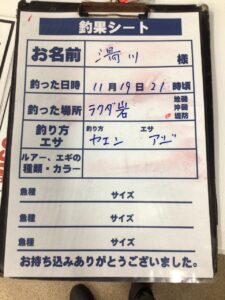 釣果シート
お名前 湯川 様
釣った日時 11月19日21時頃
釣った場所 ラクダ岩 地磯 沖磯 堤防
釣り方 エサ 釣り方 ヤエン エサ アジ
ルアー、エギの種類・カラー
魚種 サイズ
魚種 サイズ
魚種 サイズ
お持ち込みありがとうございました。